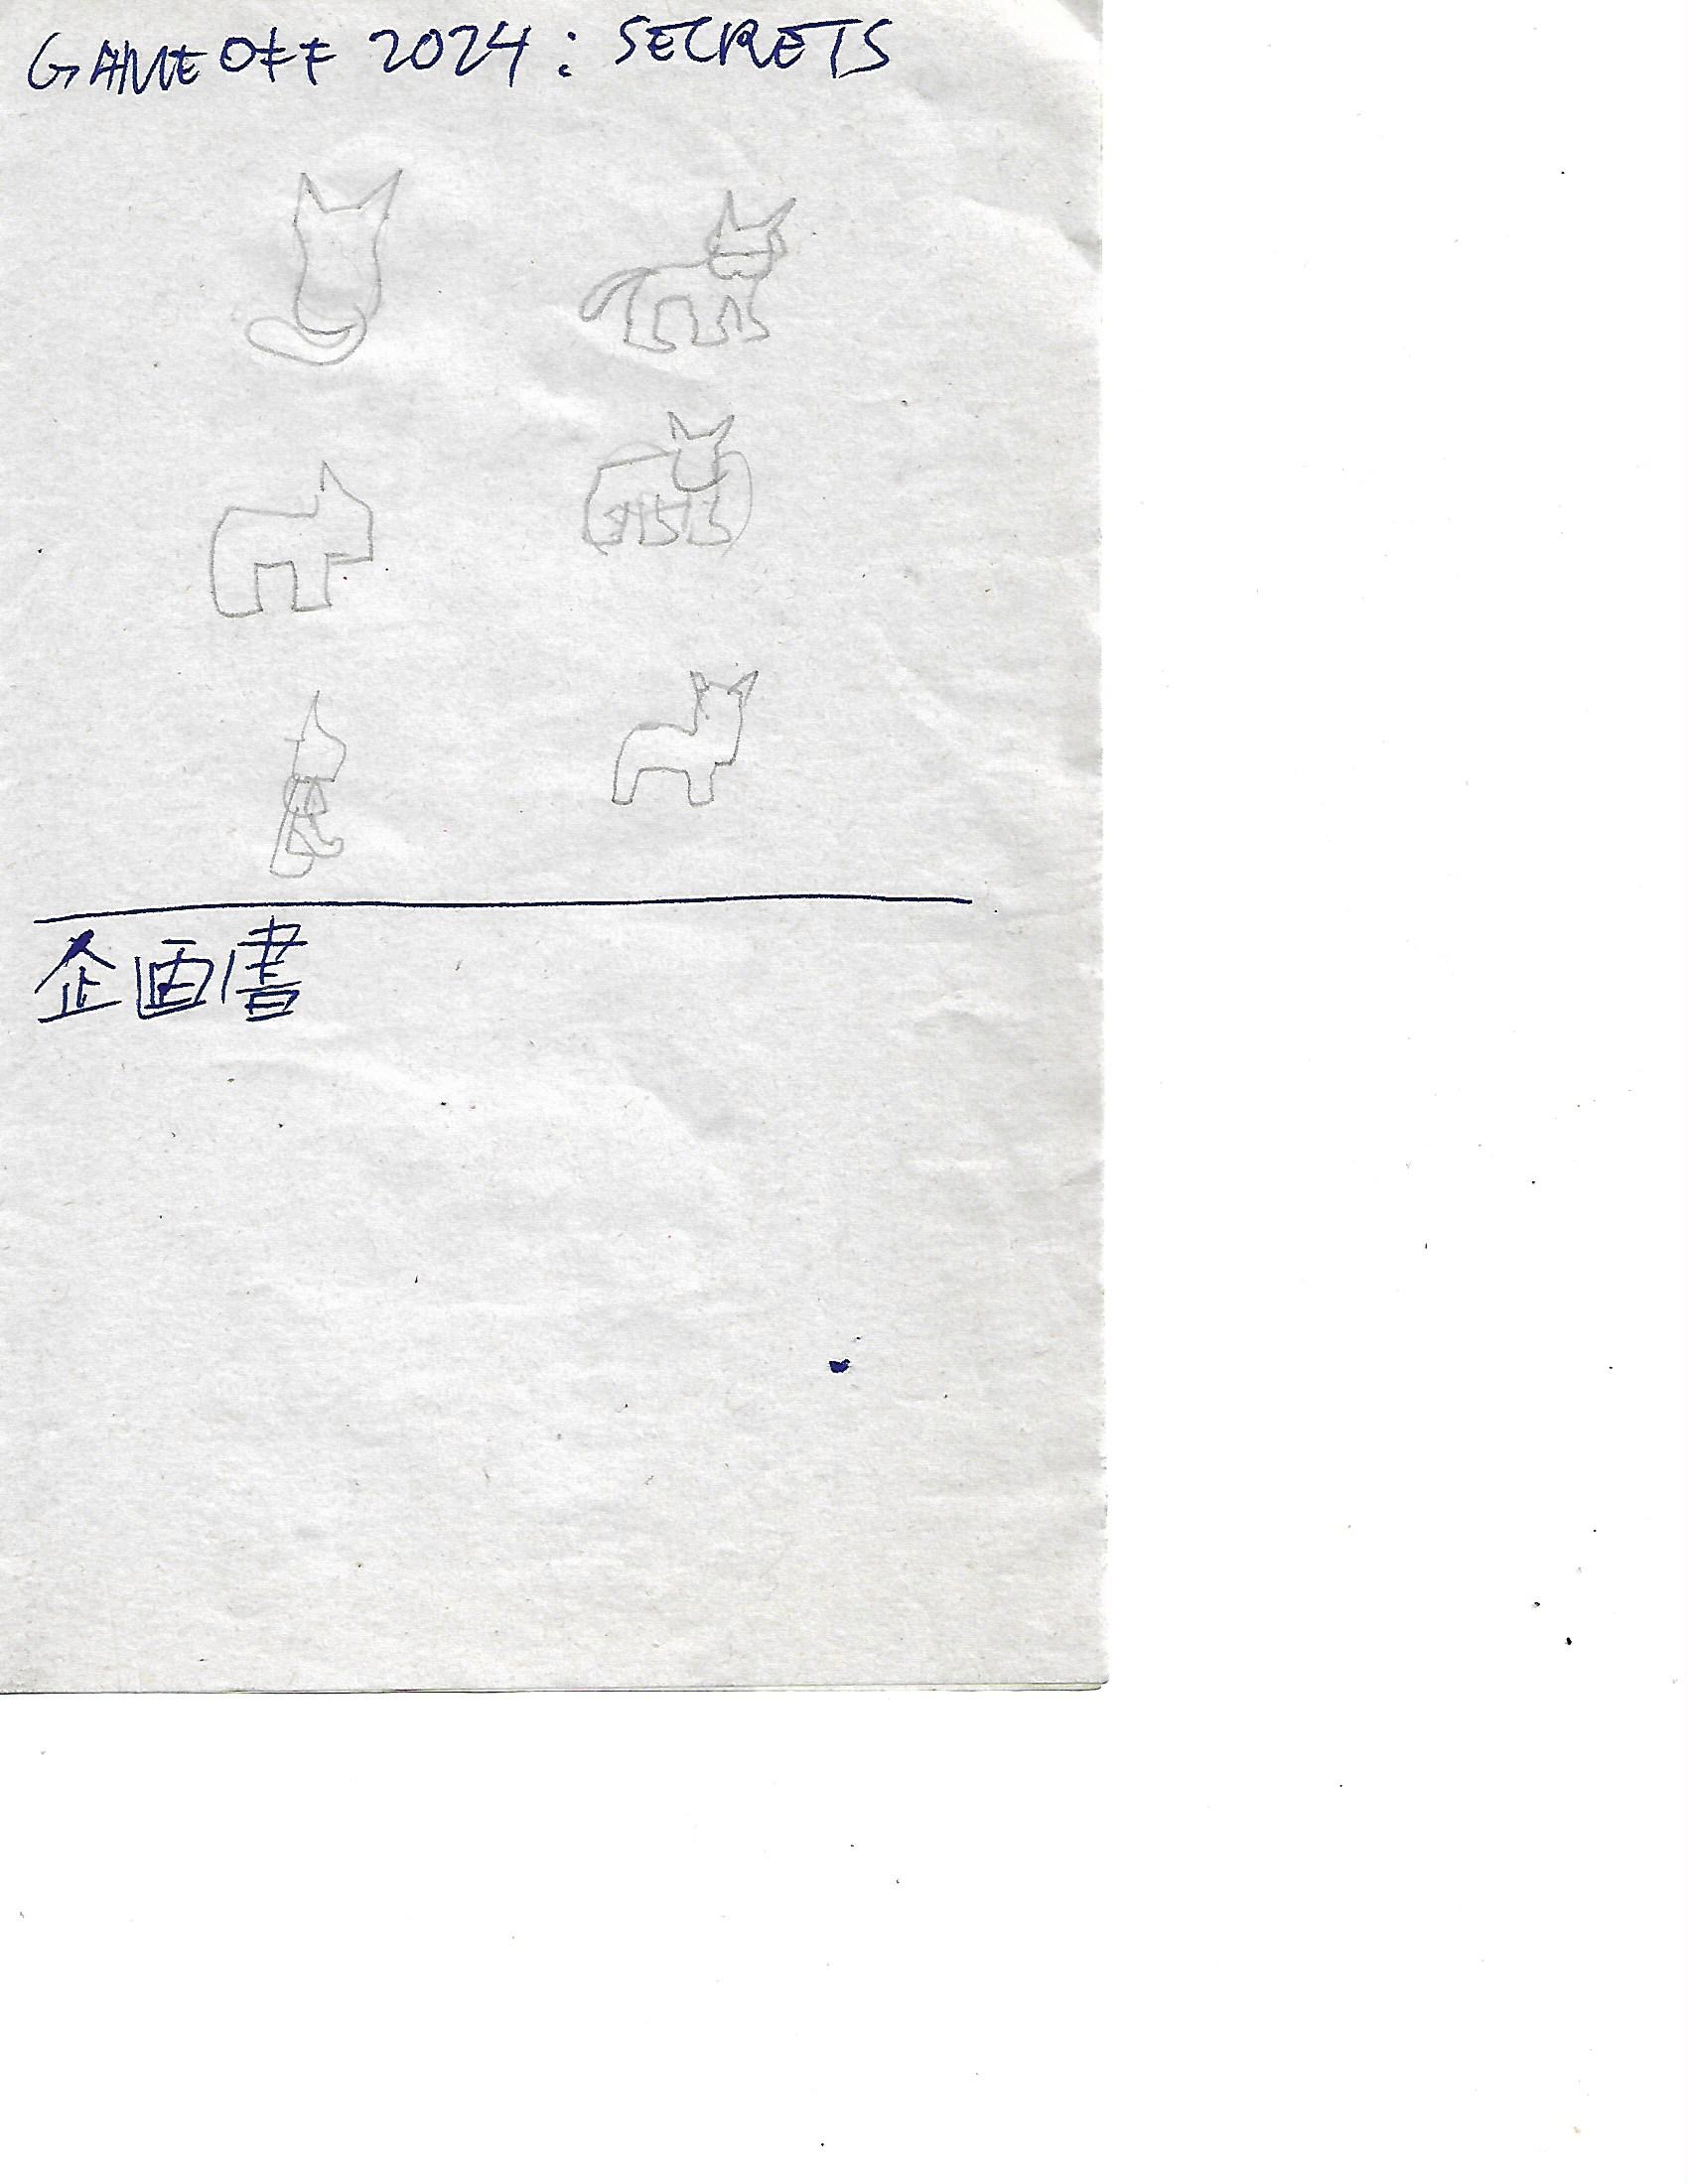 GAME OFF 2024: SECRETS
企画書